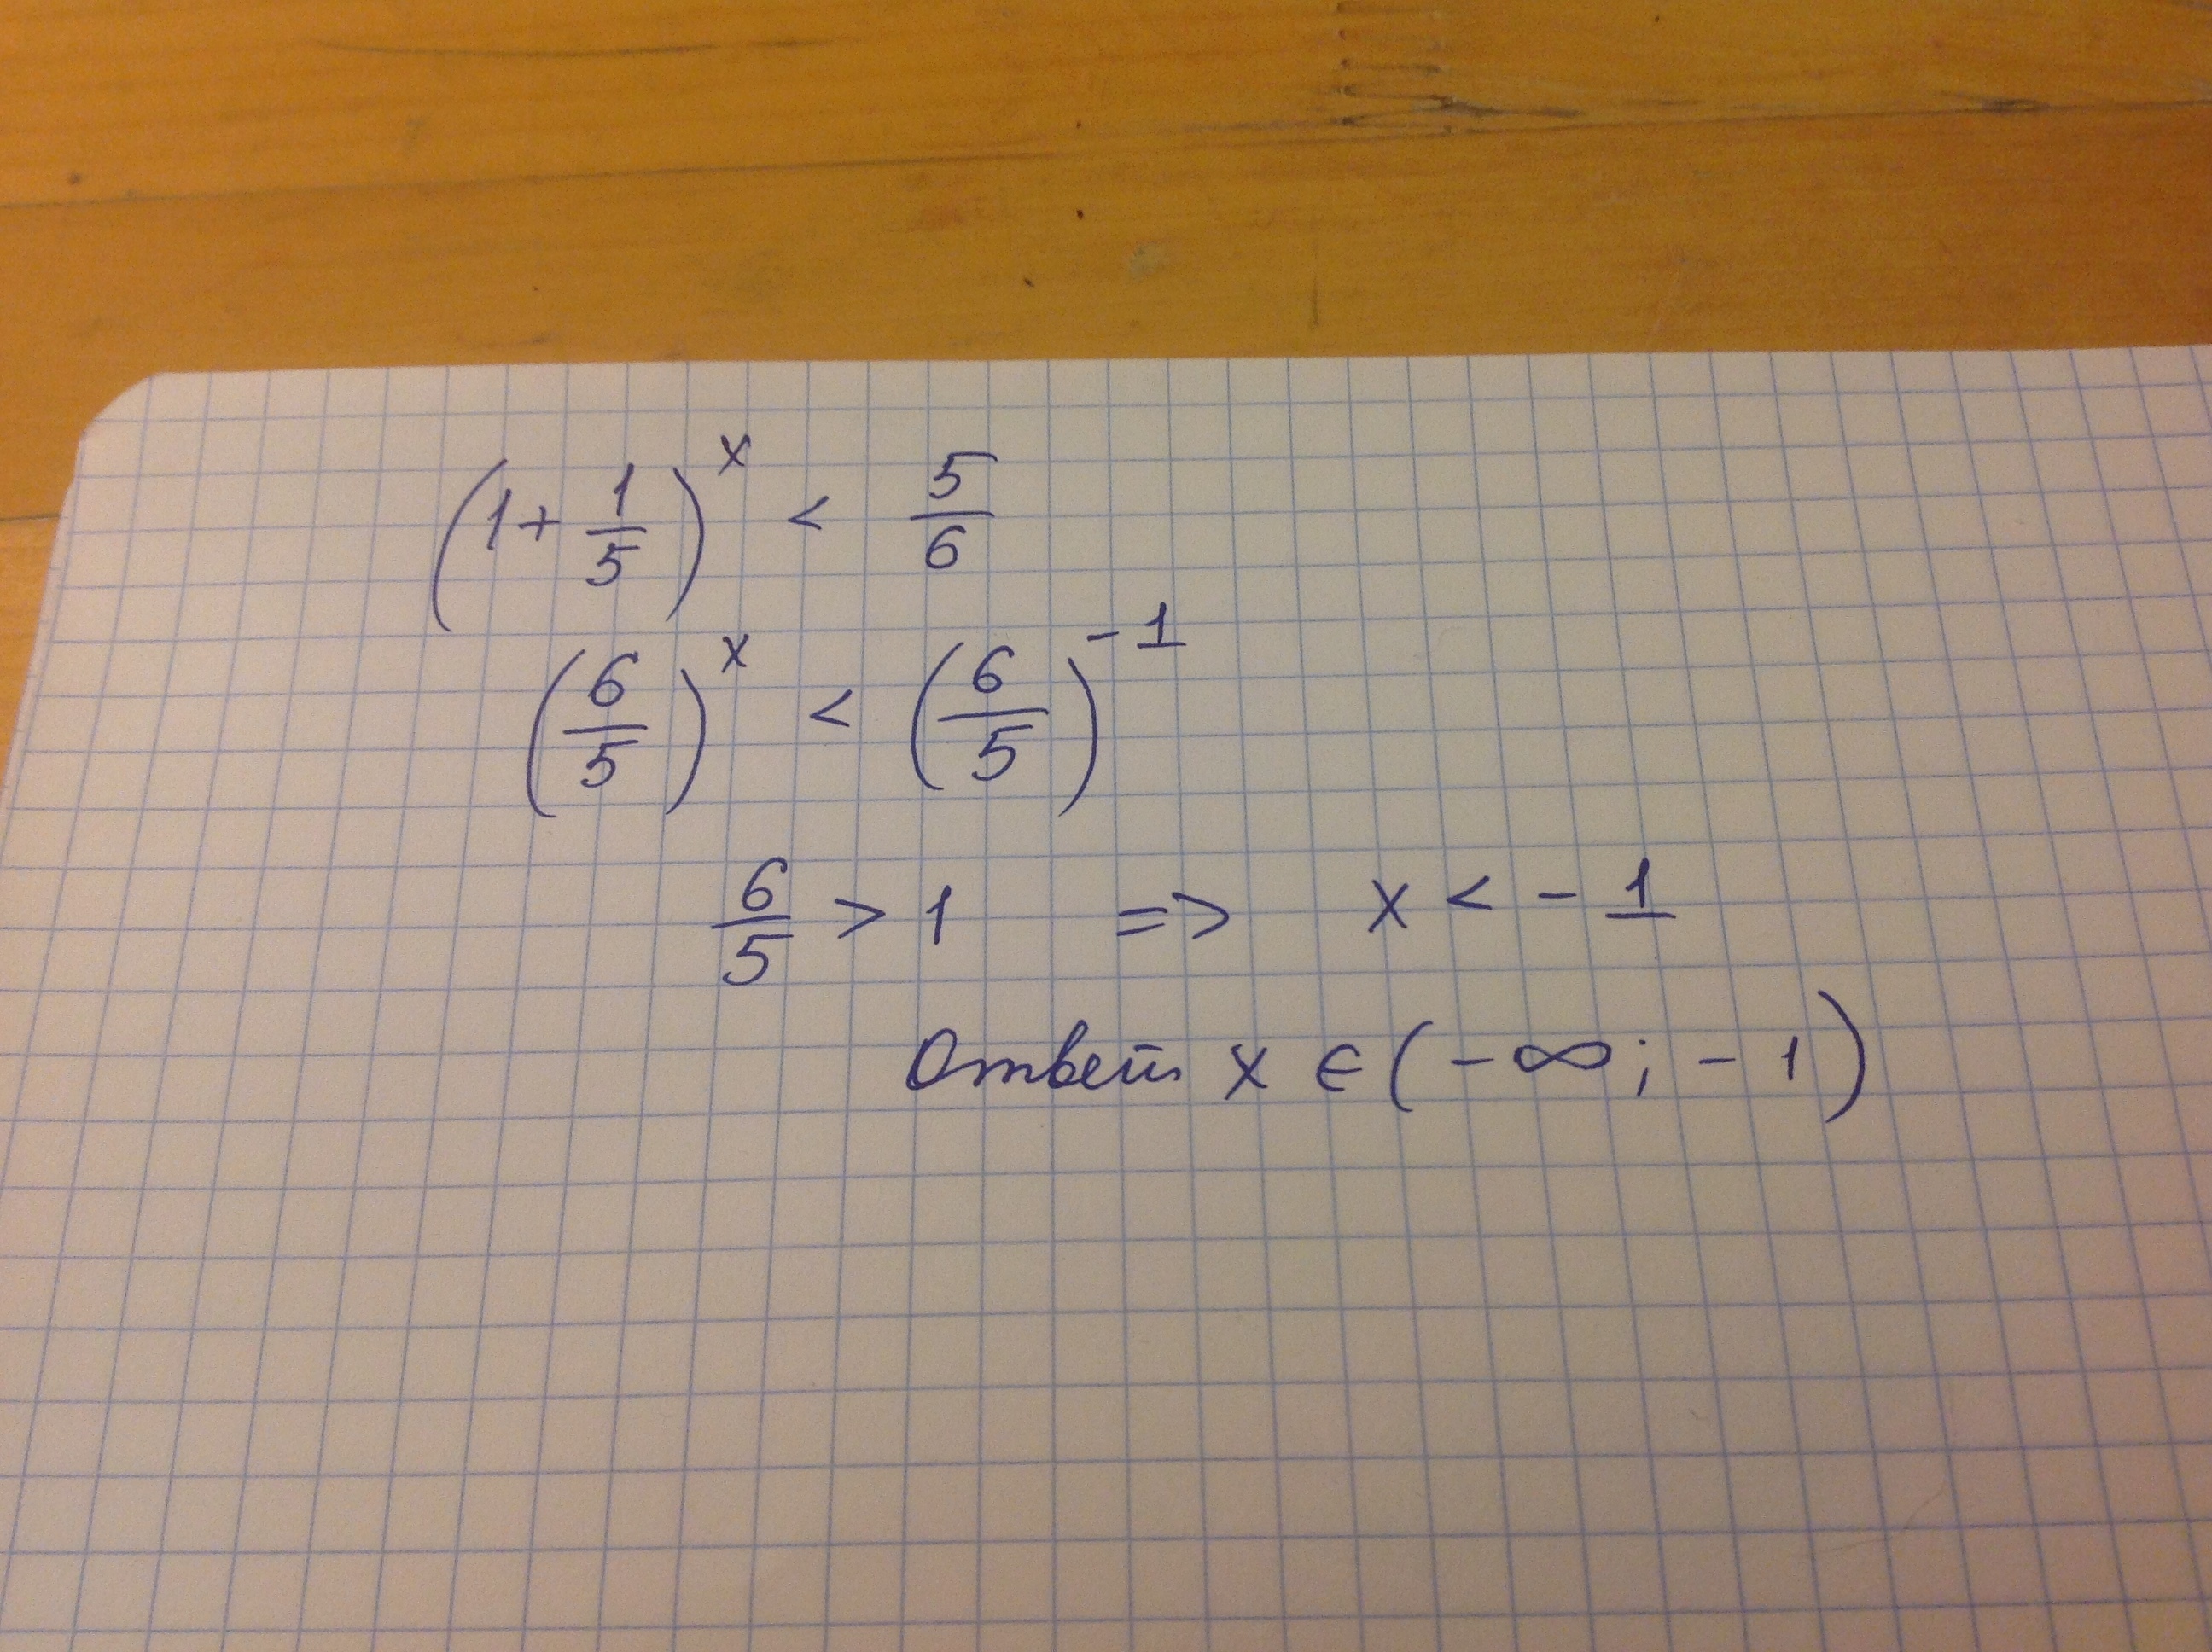 (1 + 1/5)^x < 5/6
(6/5)^x < (6/5)^-1
6/5 > 1 => x < -1
Ответ x ∈ (-∞; -1)